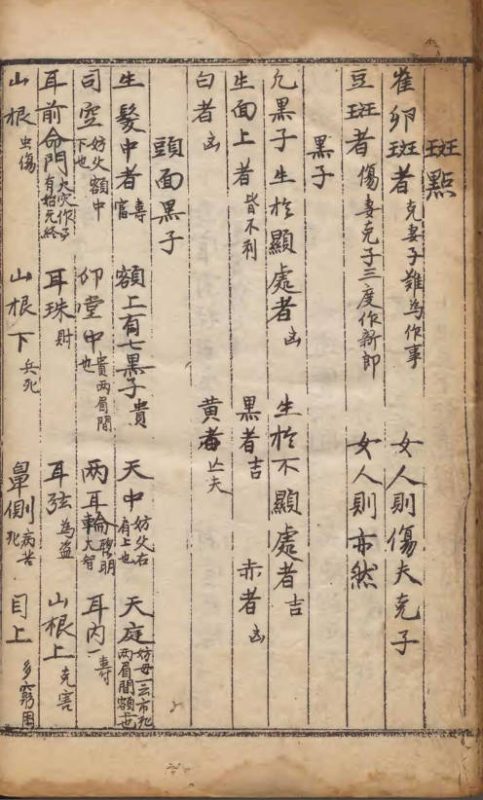 斑點
雀卵斑者 克妻子難為作事 女人則傷夫克子
豆斑者 傷妻克子三度作新郎 女人則亦然
黑子
凡黑子生於顯處者 凶 生於不顯處者 吉
生面上者 皆不利 黑者 吉 赤者 凶
白者 凶 黄者 亡夫
頭面黑子
生髮中者 壽富 額上有七黑子 貴 天中 妨父 有上也 天庭 妨母一云市死 兩眉間額也
司空 妨父額中下也 印堂中 貴兩眉間也 兩耳輪 聰明 大智 耳內 壽
耳前命門 火灾作子 有始无終 耳珠 財 耳弦 為盗 山根上 克害
山根 虫傷 山根下 兵死 鼻側 病苦死 目上 多窮困